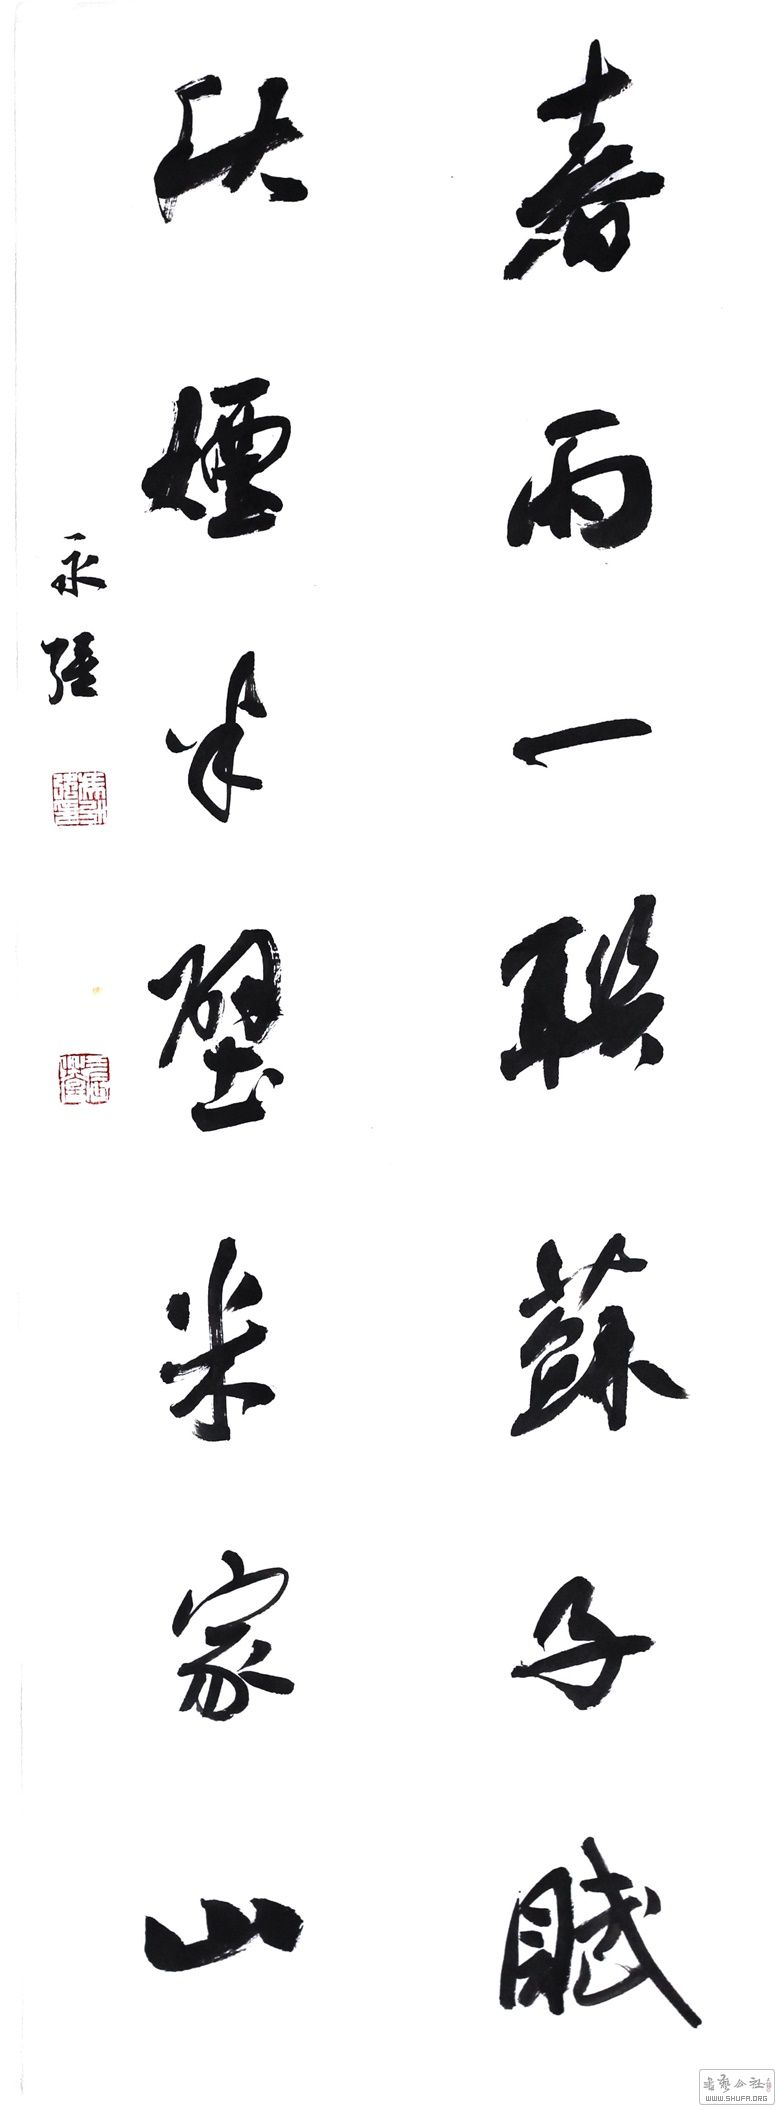 春雨一聯蘇子賦
秋煙半壁米家山
永强
书艺公社
WWW.SHUFA.ORG